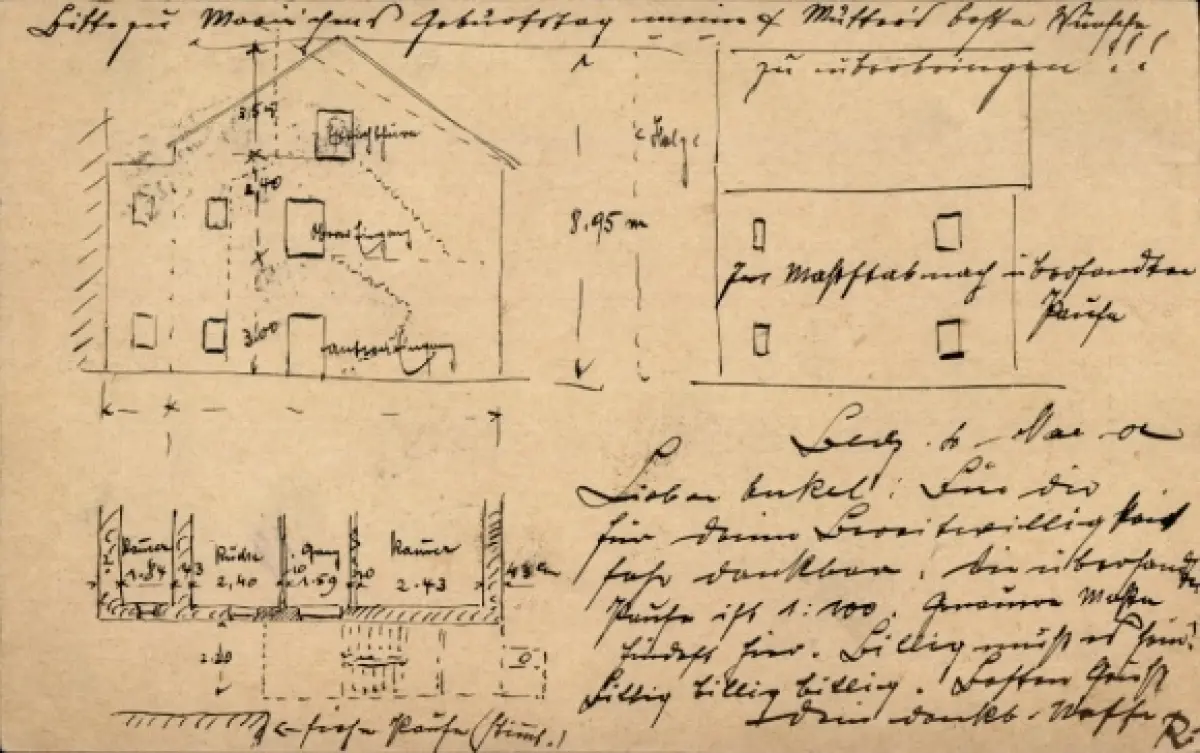 Bitte zu Mariechens Geburtstag meine & Mutters beste Wünsche
zu überbringen !!
3,50
2,40
Oberer Eingang
3.00
8.95 m
Im Maßstab nach übersandter
Pause
Lieber Onkel! Für die
für deine Bereitwilligkeit
sehr dankbar. Die übersandte
Pause ist 1:100. Genauere Maße
findest hier. Billig muß es sein!
billig billig billig. Besten Gruß
Dein dankb. Neffe R.
Kammer
1.84
Küche
2,40
Gang
1.59
Kammer
2.43
48 cm
siehe Pause